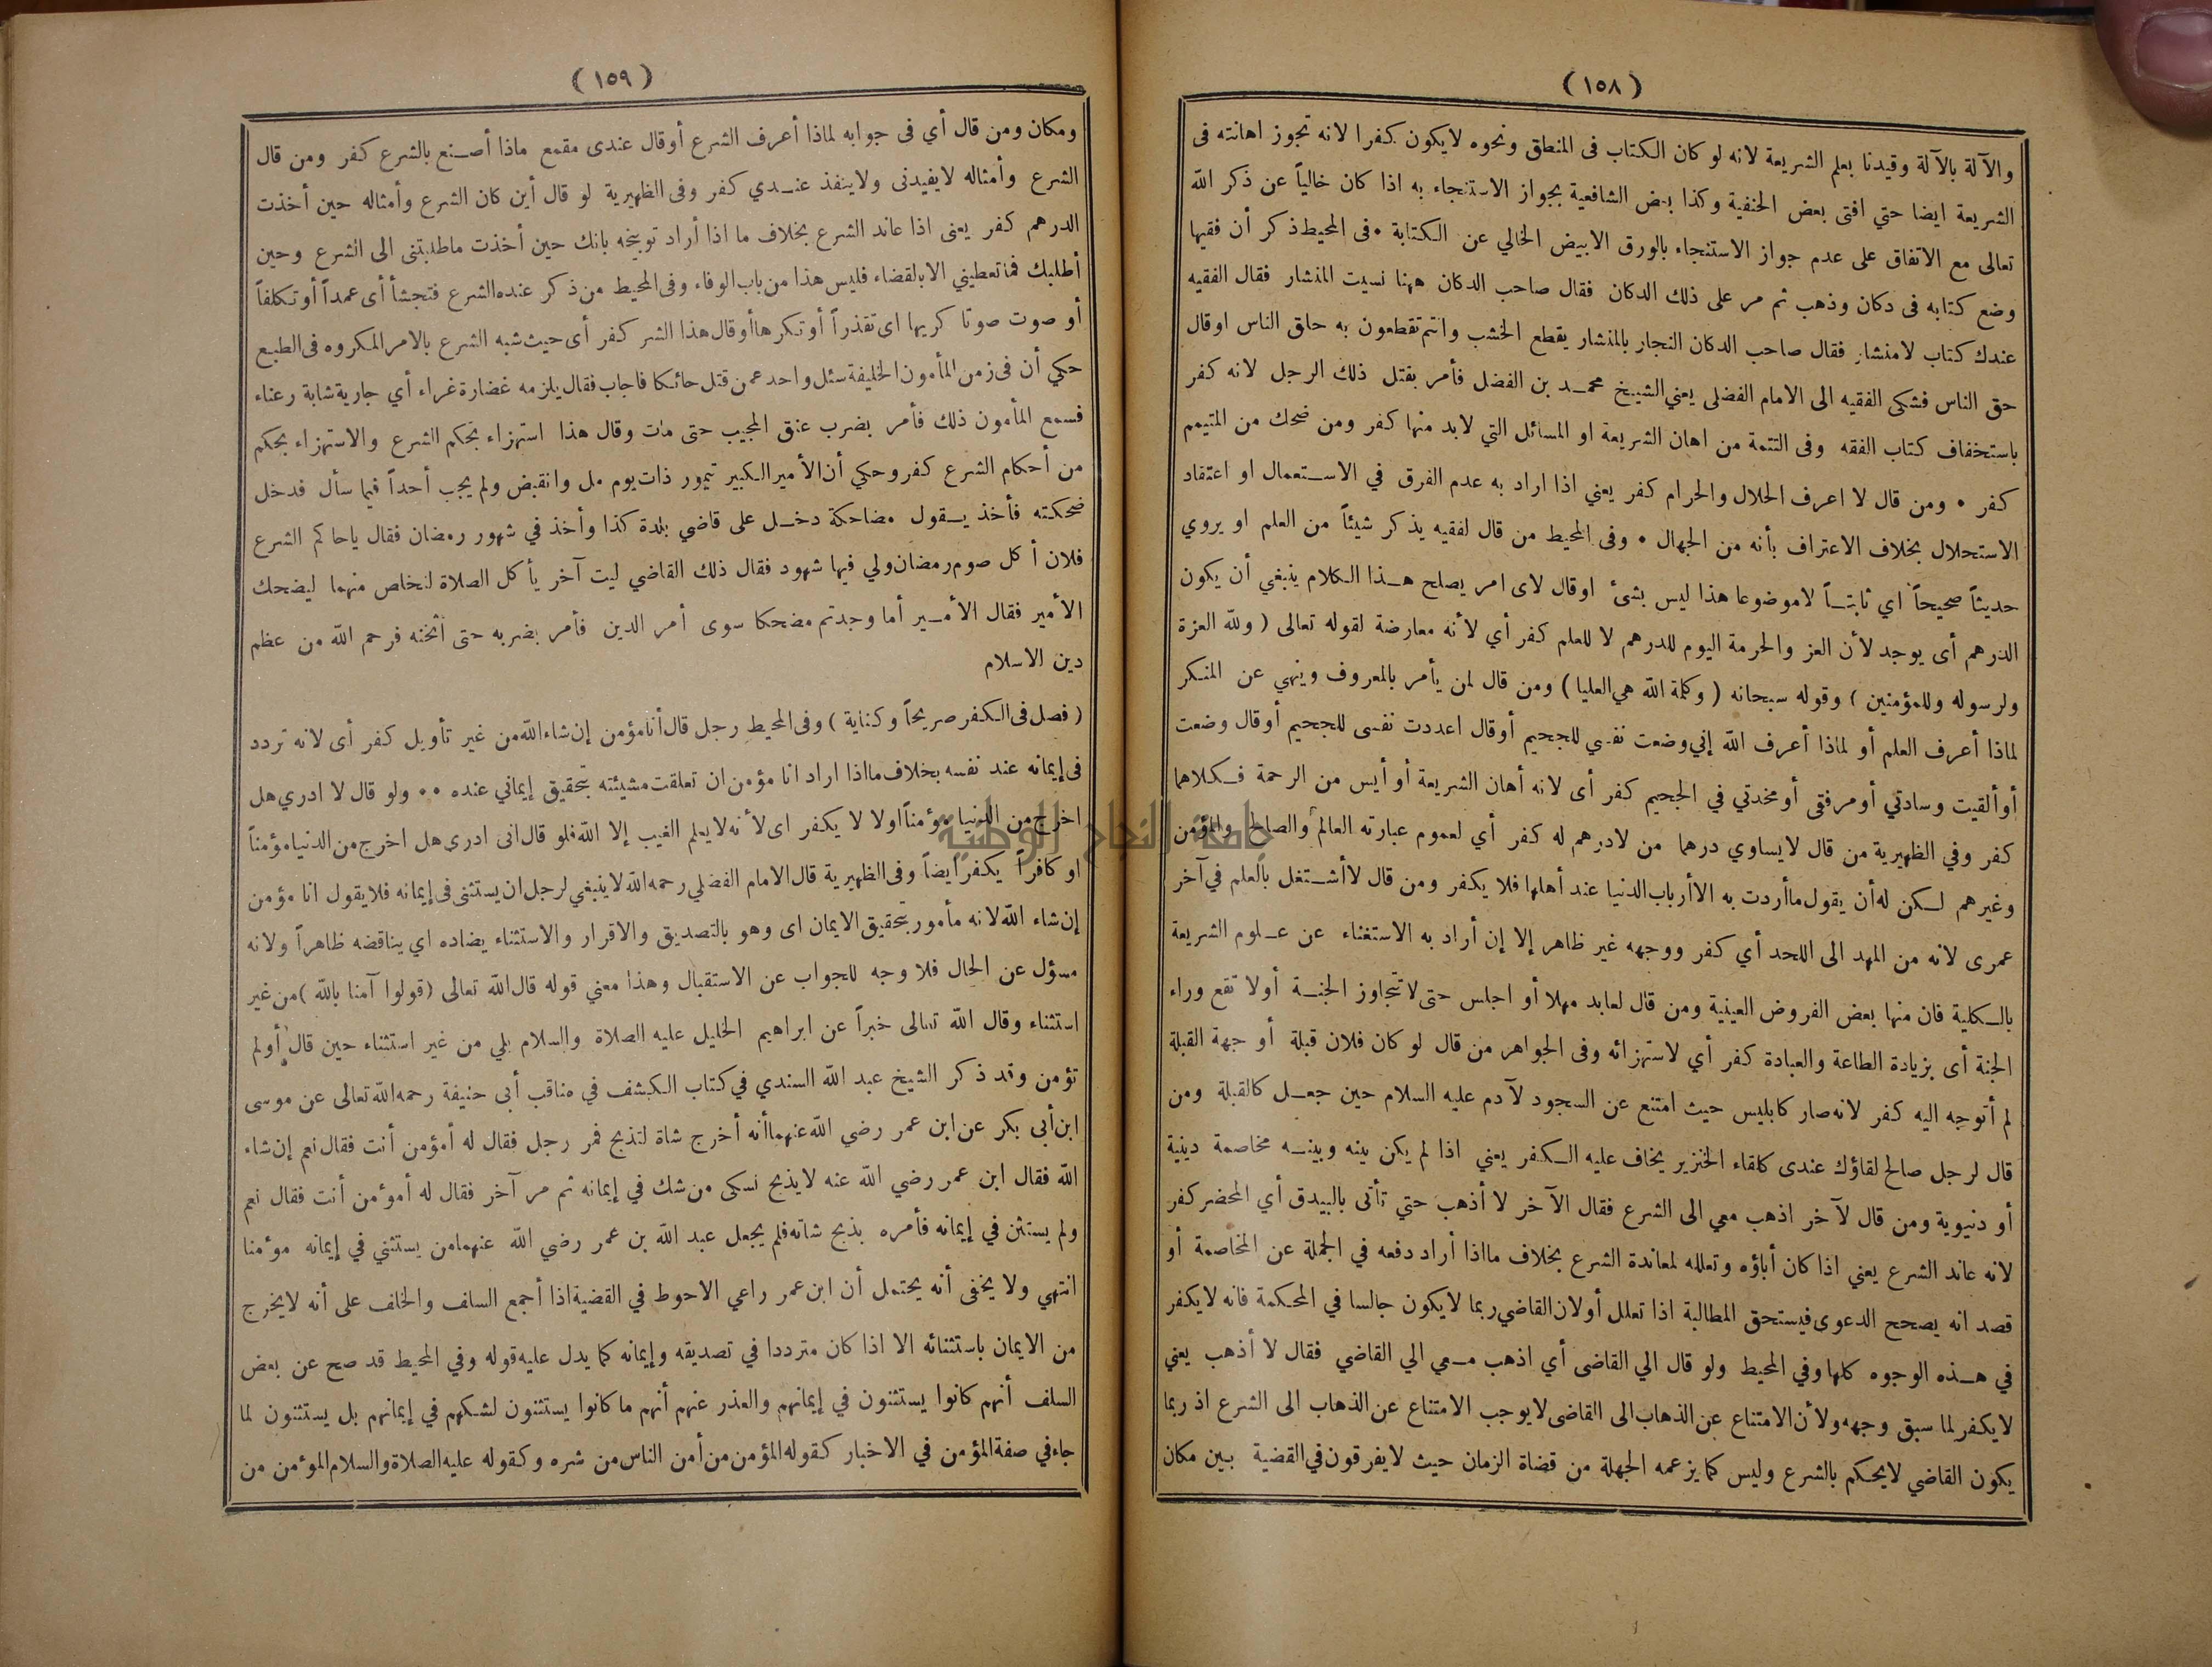 (١٥٨)
والآلة بالآلة وقيدنا بعلم الشريعة لانه لو كان الكتاب فى المنطق ونحوه لايكون كفرا لانه تجوز اهانته فى
الشريعة ايضا حتي افتى بعض الحنفية وكذا بعض الشافعية بجواز الاستنجاء به اذا كان خالياً عن ذكر الله
تعالى مع الاتفاق على عدم جواز الاستنجاء بالورق الابيض الخالي عن الكتابة • فى المحيط ذكر أن فقيها
وضع كتابه فى دكان وذهب ثم مر على ذلك الدكان فقال صاحب الدكان ههنا نسيت المنشار فقال الفقيه
عندك كتاب لامنشار فقال صاحب الدكان النجار بالمنشار يقطع الخشب وانتم تقطعون به حلق الناس اوقال
حق الناس فشكى الفقيه الى الامام الفضلى يعني الشيخ محمد بن الفضل فأمر بقتل ذلك الرجل لانه كفر
باستخفاف كتاب الفقه وفى التتمة من اهان الشريعة او المسائل التي لابد منها كفر ومن ضحك من المتيمم
كفر • ومن قال لا اعرف الحلال والحرام كفر يعني اذا اراد به عدم الفرق في الاستعمال او اعتقاد
الاستحلال بخلاف الاعتراف بأنه من الجهال • وفى المحيط من قال لفقيه يذكر شيئاً من العلم او يروي
حديثاً صحيحاً اي ثابتاً لاموضوعا هذا ليس بشئ اوقال لاى امر يصلح هذا الكلام ينبغي أن يكون
الدرهم أى يوجد لأن العز والحرمة اليوم للدرهم لا للعلم كفر أي لأنه معارضة لقوله تعالى ( ولله العزة
ولرسوله وللمؤمنين ) وقوله سبحانه ( وكلمة الله هي العليا ) ومن قال لمن يأمر بالمعروف وينهي عن المنكر
لماذا أعرف العلم أو لماذا أعرف الله إني وضعت نفسي للجحيم أوقال اعددت نفسى للجحيم أوقال وضعت
أوألقيت وسادتي أومرفقى أومخدتي في الجحيم كفر أى لانه أهان الشريعة أو أيس من الرحمة فكلاهما
كفر وفي الظهيرية من قال لايساوي درهما من لادرهم له كفر أي لعموم عبارته العالم والصالح والمؤمن
وغيرهم لكن له أن يقول ماأردت به الاأرباب الدنيا عند أهلها فلا يكفر ومن قال لاأشتغل بالعلم في آخر
عمرى لانه من المهد الى اللحد أي كفر ووجهه غير ظاهر إلا إن أراد به الاستغناء عن علوم الشريعة
بالكلية فان منها بعض الفروض العينية ومن قال لعابد مهلا أو اجلس حتى لاتتجاوز الجنة أولا تقع وراء
الجنة أى بزيادة الطاعة والعبادة كفر أي لاستهزائه وفى الجواهر من قال لو كان فلان قبلة أو جهة القبلة
لم أتوجه اليه كفر لانه صار كابليس حيث امتنع عن السجود لآدم عليه السلام حين جعل كالقبلة ومن
قال لرجل صالح لقاؤك عندى كلقاء الخنزير يخاف عليه الكفر يعني اذا لم يكن بينه وبينه مخاصمة دينية
أو دنيوية ومن قال لآخر اذهب معي الى الشرع فقال الآخر لا أذهب حتي تأتى بالبيدق أي المحضر كفر
لانه عاند الشرع يعني اذا كان أباؤه وتعلله لمعاندة الشرع بخلاف مااذا أراد دفعه في الجملة عن المخاصمة أو
قصد انه يصحح الدعوى فيستحق المطالبة اذا تعلل أولان القاضي ربما لايكون جالسا في المحكمة فانه لايكفر
في هذه الوجوه كلها وفي المحيط ولو قال الي القاضى أي اذهب معي الي القاضي فقال لا أذهب يعني
لايكفر لما سبق وجهه ولأن الامتناع عن الذهاب الى القاضى لايوجب الامتناع عن الذهاب الى الشرع اذ ربما
يكون القاضي لايحكم بالشرع وليس كما يزعمه الجهلة من قضاة الزمان حيث لايفرقون في القضية بين مكان
(١٥٩)
ومكان ومن قال أي فى جوابه لماذا أعرف الشرع أوقال عندى مقمع ماذا أصنع بالشرع كفر ومن قال
الشرع وأمثاله لايفيدنى ولاينفذ عندي كفر وفى الظهيرية لو قال أين كان الشرع وأمثاله حين أخذت
الدرهم كفر يعنى اذا عاند الشرع بخلاف ما اذا أراد توبيخه بانك حين أخذت ماطلبتنى الى الشرع وحين
أطلبك فما تعطيني الابالقضاء فليس هذا من باب الوفاء وفى المحيط من ذكر عنده الشرع فتجشأ أى عمداً أوتكلفاً
أو صوت صوتا كريها اى تقذراً أو تكرها أوقال هذا الشر كفر أى حيث شبه الشرع بالامر المكروه فى الطبع
حكي أن فى زمن المأمون الخليفة سئل واحد عمن قتل حائكا فاجاب فقال يلزمه غضارة غراء أي جارية شابة رعناء
فسمع المأمون ذلك فأمر بضرب عنق المجيب حتى مات وقال هذا استهزاء بحكم الشرع والاستهزاء بحكم
من أحكام الشرع كفر وحكي أن الأمير الكبير تيمور ذات يوم مل وانقبض ولم يجب أحداً فيما سأل فدخل
ضحكته فأخذ يقول مضاحكة دخل على قاضي بلدة كذا وأخذ في شهور رمضان فقال ياحاكم الشرع
فلان أكل صوم رمضان ولي فيها شهود فقال ذلك القاضي ليت آخر يأكل الصلاة لنخلص منهما ليضحك
الأمير فقال الأمير أما وجدتم مضحكا سوى أمر الدين فأمر بضربه حتى أثخنه فرحم الله من عظم
دين الاسلام
( فصل فى الكفر صريحاً وكناية ) وفى المحيط رجل قال أنا مؤمن إن شاء الله من غير تأويل كفر أى لانه تردد
فى إيمانه عند نفسه بخلاف مااذا اراد انا مؤمن ان تعلقت مشيئته بتحقيق إيماني عنده • • ولو قال لا ادري هل
اخرج من الدنيا مؤمناً اولا لا يكفر اى لأنه لايعلم الغيب إلا الله فلو قال انى ادرى هل اخرج من الدنيا مؤمناً
او كافراً يكفر ايضاً وفى الظهيرية قال الامام الفضلي رحمه الله لاينبغي لرجل ان يستثنى فى إيمانه فلا يقول انا مؤمن
إن شاء الله لانه مأمور بتحقيق الايمان اى وهو بالتصديق والاقرار والاستثناء يضاده اي يناقضه ظاهراً ولانه
مسؤل عن الحال فلا وجه للجواب عن الاستقبال وهذا معني قوله قال الله تعالى ( قولوا آمنا بالله ) من غير
استثناء وقال الله تعالى خبراً عن ابراهيم الخليل عليه الصلاة والسلام بلي من غير استثناء حين قال أولم
تؤمن وقد ذكر الشيخ عبد الله السندي في كتاب الكشف في مناقب أبى حنيفة رحمه الله تعالى عن موسى
ابن أبى بكر عن ابن عمر رضي الله عنهما أنه أخرج شاة لتذبح فمر رجل فقال له أمؤمن أنت فقال نعم إن شاء
الله فقال ابن عمر رضي الله عنه لايذبح نسكى من شك في إيمانه ثم مر آخر فقال له أمؤمن أنت فقال نعم
ولم يستثن في إيمانه فأمره بذبح شاته فلم يجعل عبد الله بن عمر رضي الله عنهما من يستثني في إيمانه مؤمنا
انتهي ولا يخفى أنه يحتمل أن ابن عمر راعي الاحوط في القضية اذا أجمع السلف والخلف على أنه لايخرج
من الايمان باستثنائه الا اذا كان مترددا في تصديقه وإيمانه كما يدل عليه قوله وفي المحيط قد صح عن بعض
السلف أنهم كانوا يستثنون في إيمانهم والعذر عنهم أنهم ما كانوا يستثنون لشكهم في إيمانهم بل يستثنون لما
جاء في صفة المؤمن في الاخبار كقوله المؤمن من أمن الناس من شره وكقوله عليه الصلاة والسلام المؤمن من
جامعة النجاح الوطنية